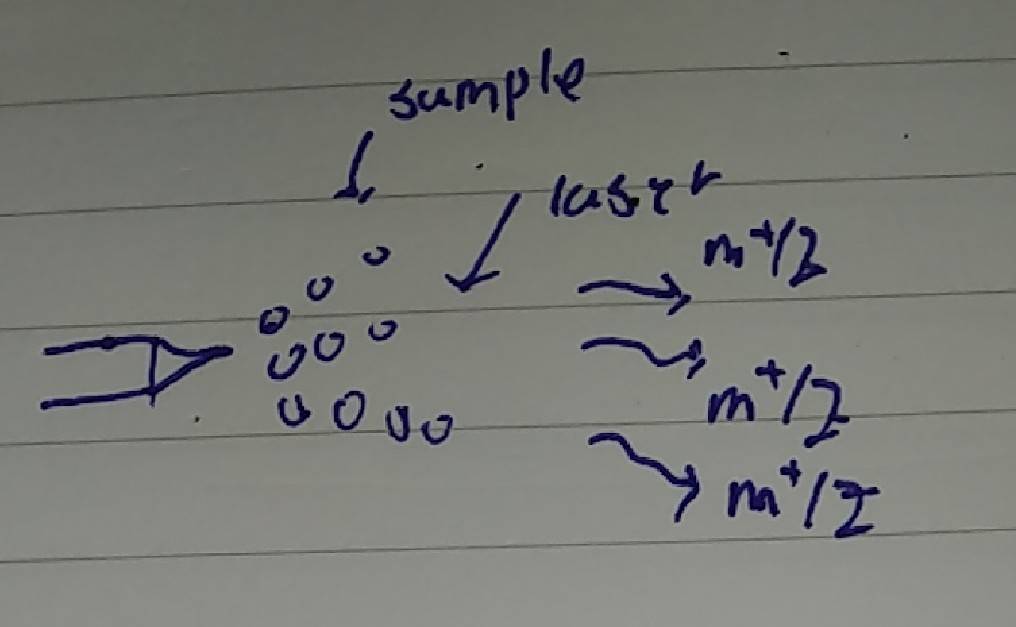 sample
laser
m⁺/z
m⁺/z
m⁺/z